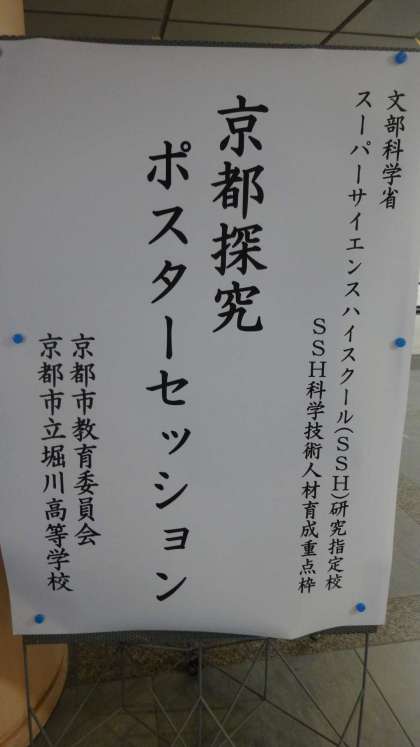 文部科学省
スーパーサイエンスハイスクール(SSH)研究指定校
SSH科学技術人材育成重点枠
京都探究
ポスターセッション
京都市教育委員会
京都市立堀川高等学校